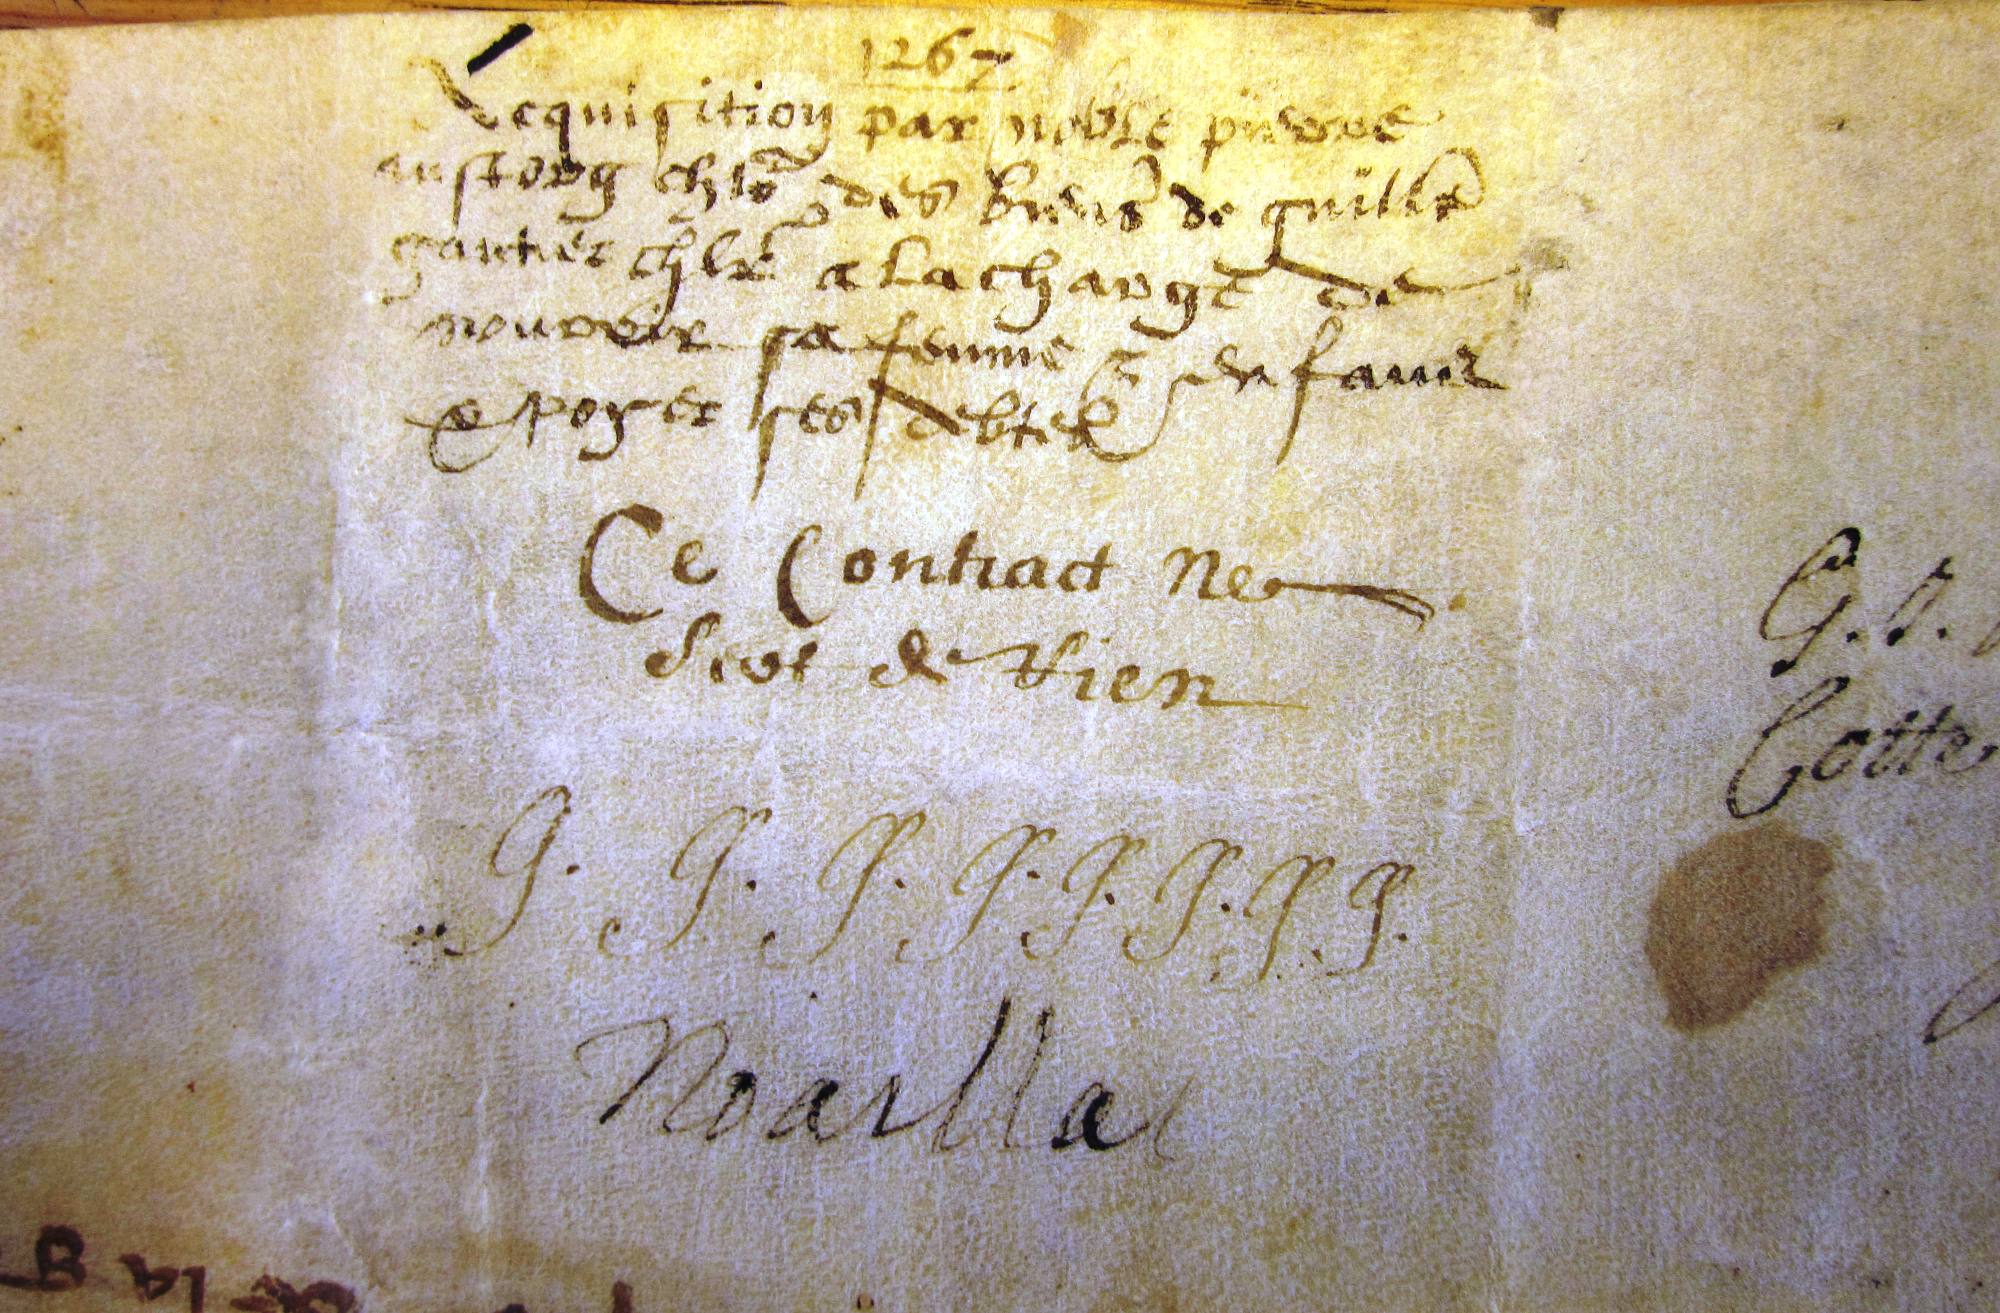 1267
Acquisition par noble pierre
austorg chlr des biens de guille
gautier chlr a la charge de
nourrir sa femme & enfans
& poyer ses debtes
Ce Contract Ne
sert de Rien
G. G. G. G. G. G. G G.
Noailla
G. A.
Cotte